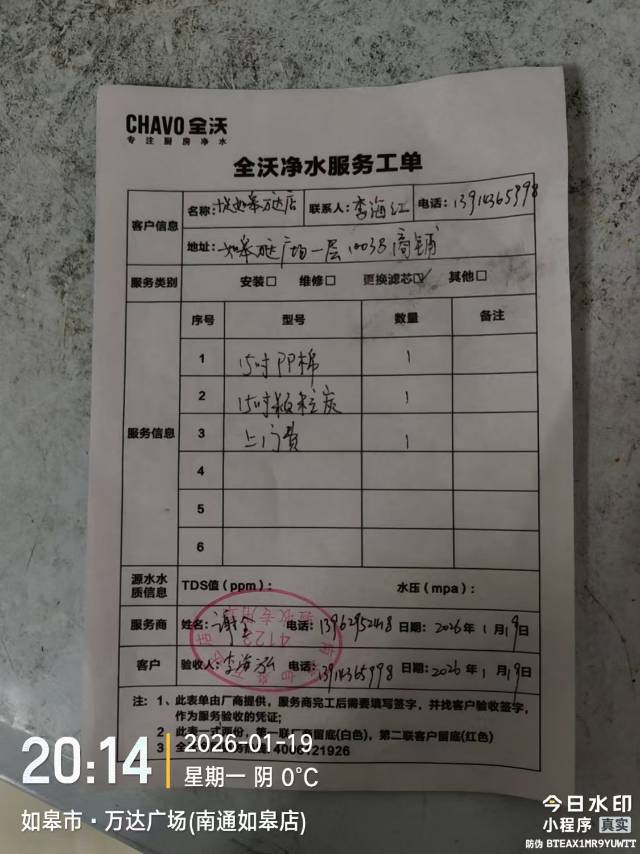 CHAVO 全沃
专注厨房净水
全沃净水服务工单
客户信息
名称: 如皋万达店 联系人: 李海红 电话:
地址: 如皋万达广场一层1003B商铺
服务类别 安装□ 维修□ 更换滤芯☑ 其他□
服务信息
序号 型号 数量 备注
1 15吋PP棉 1
2 15吋颗粒炭 1
3 上门费 1
4
5
6
源水水质信息 TDS值（ppm）: 水压（mpa）:
服务商 姓名: 谢全 电话: 13962952418 日期: 2026年1月19日
客户 验收人: 电话: 日期: 2026年1月19日
注: 1、此表单由厂商提供，服务商完工后需要填写签字，并找客户验收签字，
作为服务验收的凭证;
2 此表一式两份，第一联厂商留底(白色)，第二联客户留底(红色)
3 4006121926
20:14
2026-01-19
星期一 阴 0℃
如皋市·万达广场(南通如皋店)
今日水印
小程序 真实
防伪 BTEAX1MR9YUWTT